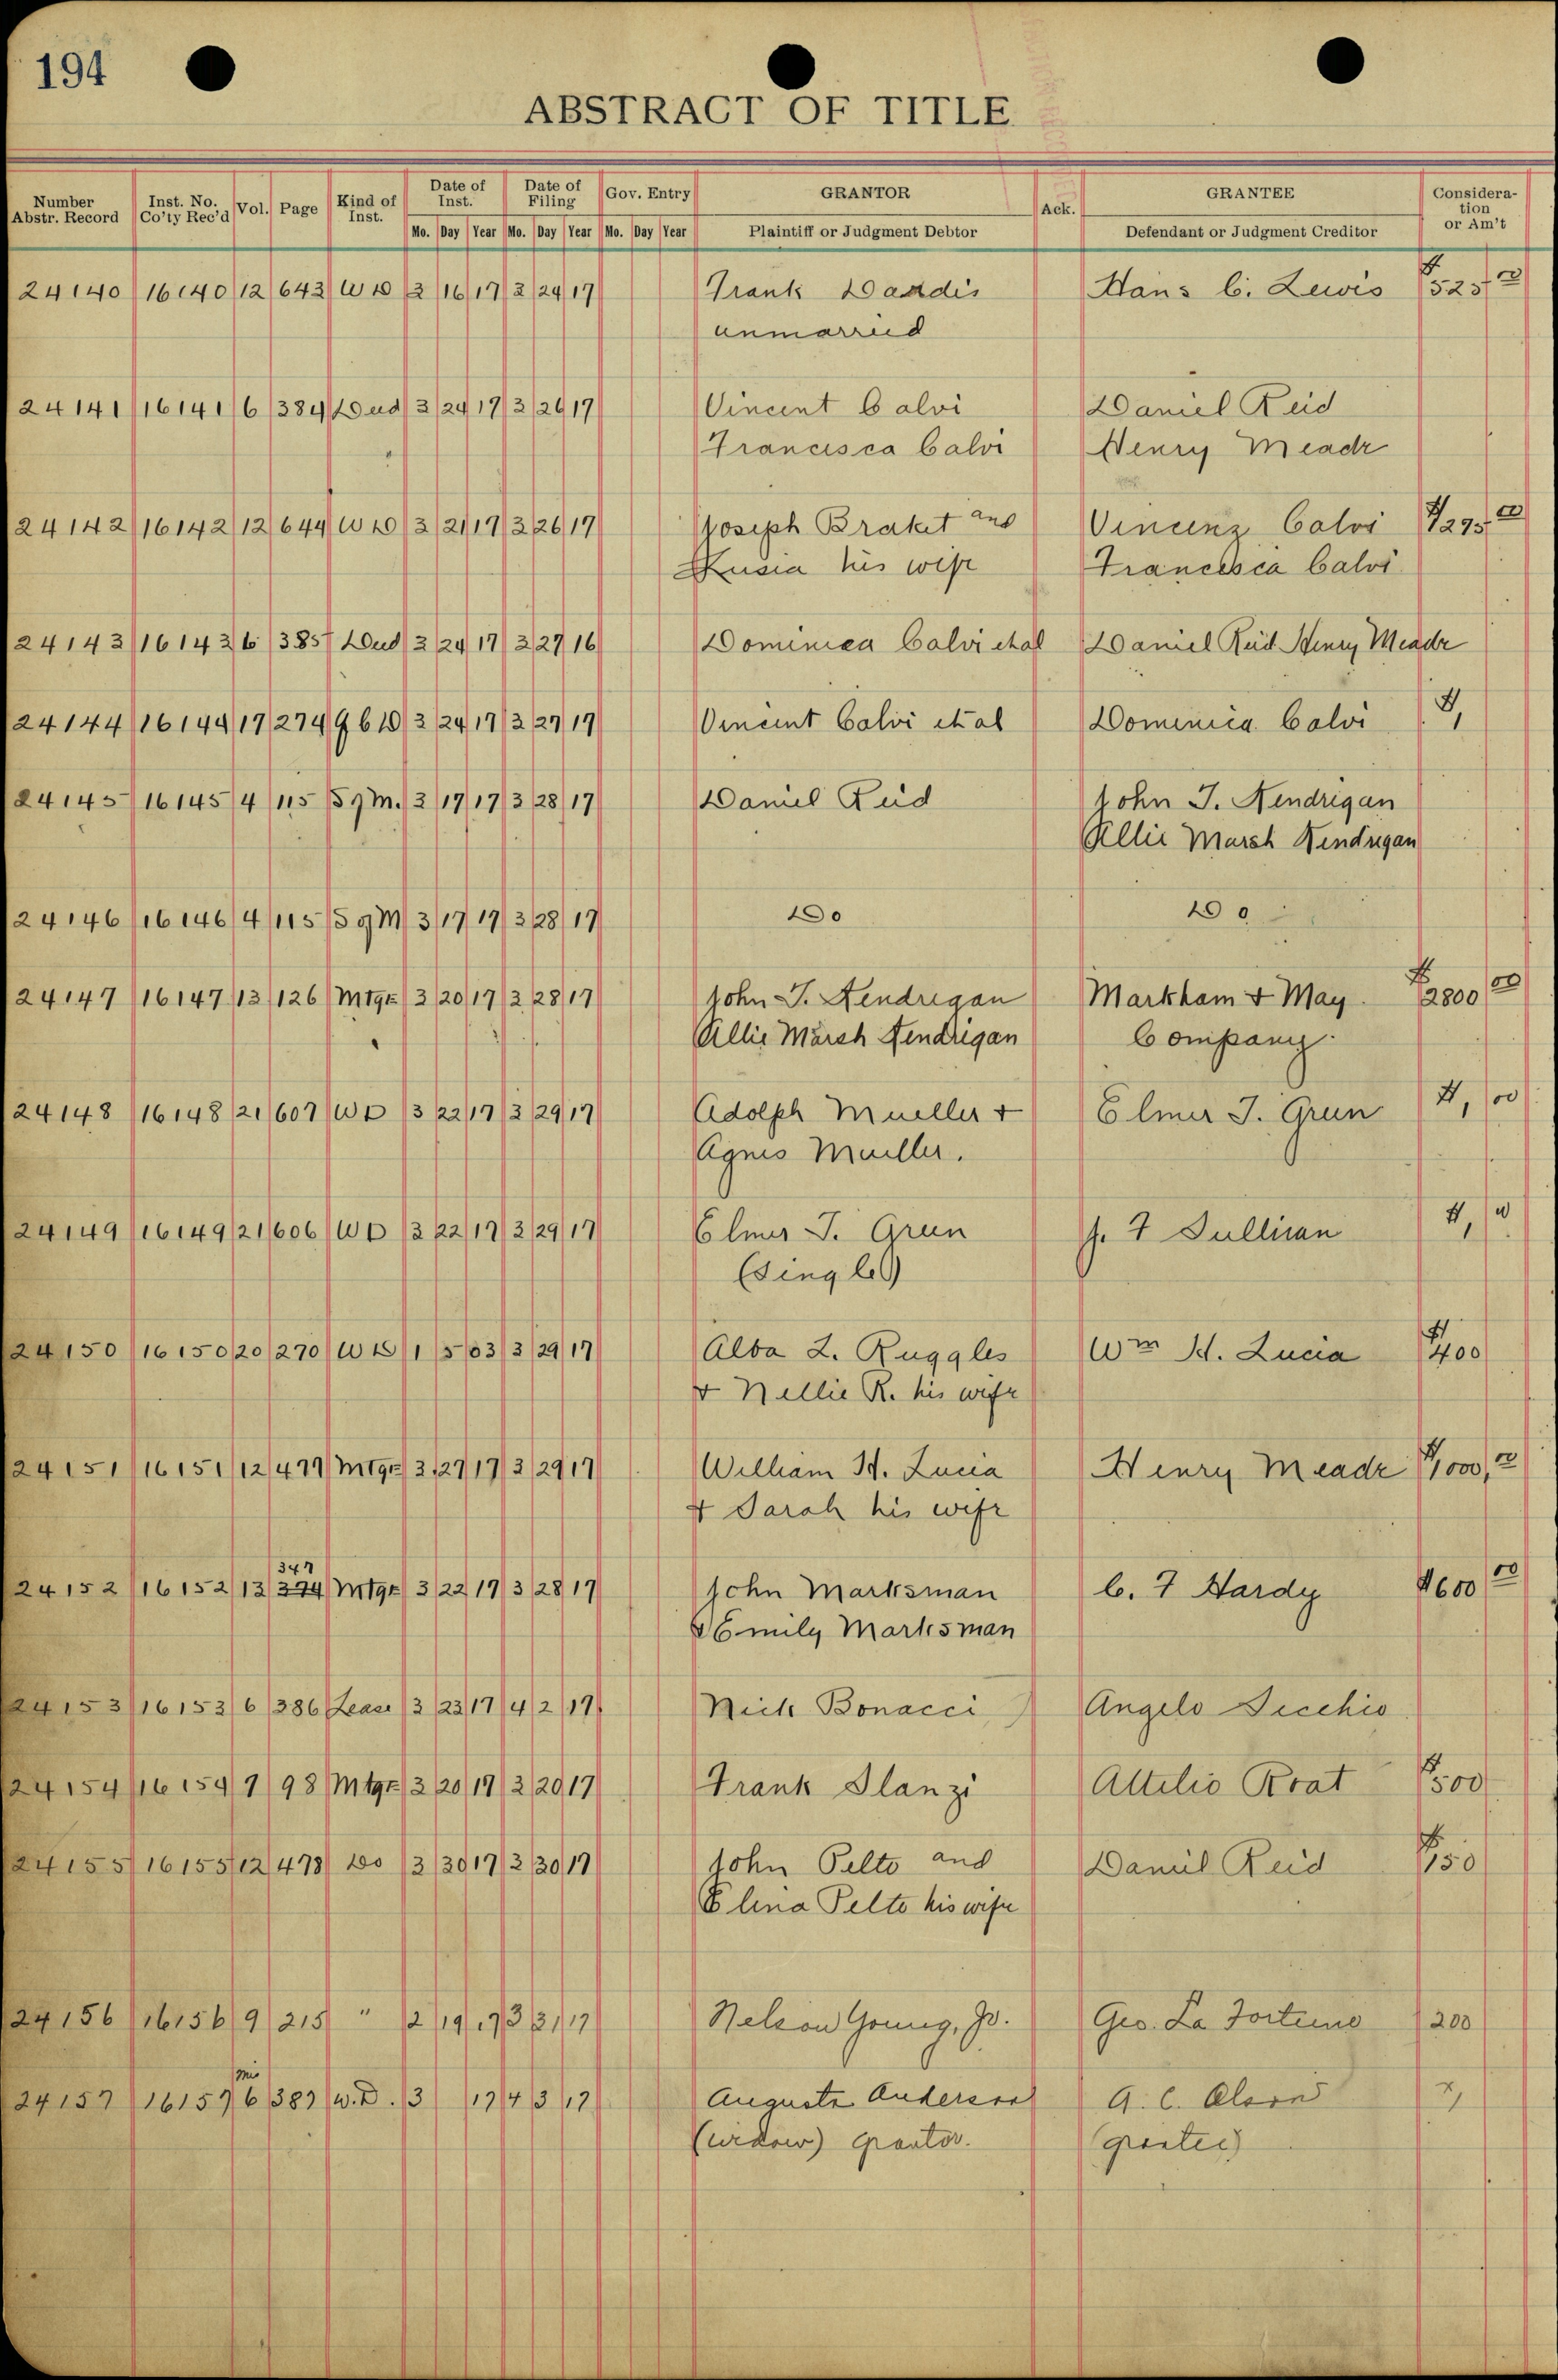 194
ABSTRACT OF TITLE
Number Abstr. Record Inst. No. Co'ty Rec'd Vol. Page Kind of Inst. Date of Inst. Date of Filing Gov. Entry GRANTOR Ack. GRANTEE Considera-tion or Am't
Mo. Day Year Mo. Day Year Mo. Day Year Plaintiff or Judgment Debtor Defendant or Judgment Creditor
24140 16140 12 643 WD 3 16 17 3 24 17 Frank Dardis Hans C. Lewis $525 00
unmarried
24141 16141 6 384 Deed 3 24 17 3 26 17 Vincent Calvi Daniel Reid
Francisca Calvi Henry Meade
24142 16142 12 644 WD 3 21 17 3 26 17 Joseph Braket and Vincenz Calvi $1295 00
his wife Francesca Calvi
24143 16143 6 385 Deed 3 24 17 3 27 16 Dominica Calvi etal Daniel Reid Henry Meade
24144 16144 17 274 QCD 3 24 17 3 27 17 Vincent Calvi et al Dominica Calvi $1,
24145 16145 4 115 Sg M. 3 17 17 3 28 17 Daniel Reid John J. Hendrigan
Allie Marsh Hendrigan
24146 16146 4 115 Sg M 3 17 17 3 28 17 Do Do
24147 16147 13 126 Mtge 3 20 17 3 28 17 John J. Hendrigan Markham & May $2800 00
Allie Marsh Hendrigan Company.
24148 16148 21 607 WD 3 22 17 3 29 17 Adolph Mueller & Elmer J. Grun $1, 00
Agnes Mueller.
24149 16149 21 606 WD 3 22 17 3 29 17 Elmer J. Grun J. F Sullivan $1, 00
(Single)
24150 16150 20 270 WD 1 5 03 3 29 17 Alba L. Ruggles Wm H. Lucia $400
& Nellie R. his wife
24151 16151 12 477 Mtge 3 27 17 3 29 17 William H. Lucia Henry Meade $1,000, 00
& Sarah his wife
347
24152 16152 13 374 Mtge 3 22 17 3 28 17 John Marksman C. F Hardy $600 00
& Emily Marksman
24153 16153 6 386 Lease 3 23 17 4 2 17 Nick Bonacci Angelo Secchio
24154 16154 7 98 Mtge 3 20 17 3 20 17 Frank Slanzi Attilio Roat $500
24155 16155 12 478 Do 3 30 17 3 30 17 John Pelto and Daniel Reid $150
Elina Pelto his wife
24156 16156 9 215 " 2 19 17 3 31 17 Nelson Young, Jr. Geo. La Fortune 200
Mis
24157 16157 6 387 W.D. 3 17 4 3 17 Augusta Anderson A. C. Olson 1,
(widow) Grantor. (grantee)